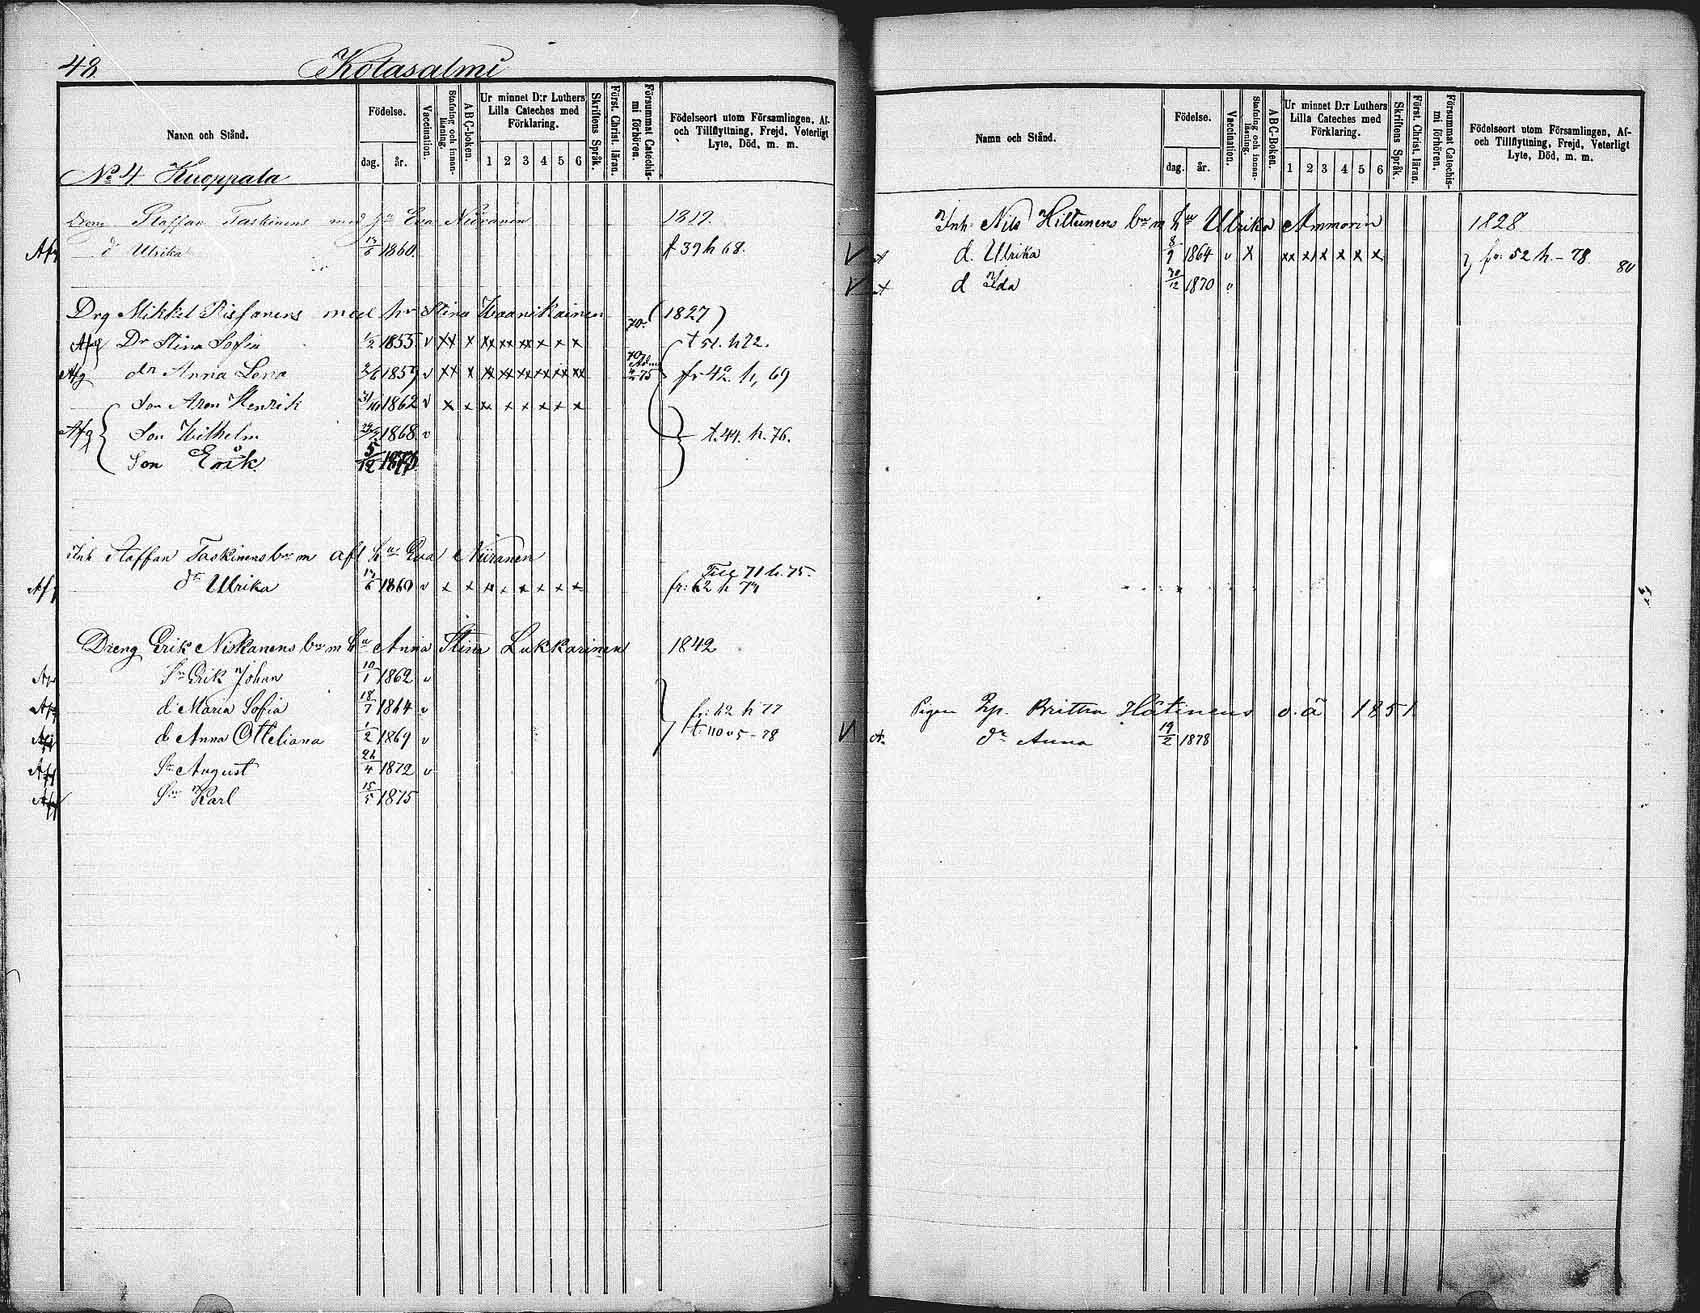 48 Kotasalmi
Namn och Stånd.
Födelse.
dag. år.
Vaccination.
Stafning och innanläsning.
ABC-boken.
Ur minnet D:r Luthers Lilla Cateches med Förklaring.
1 2 3 4 5 6
Skriftens Språk.
Först. Christ. läran.
Försummat Catechismi förhören.
Födelseort utom Församlingen, Af- och Tillflyttning, Frejd, Veterligt Lyte, Död, m. m.
No 4 Kuoppala
Staffan Taskinens med Eva Niiranen 1819.
Afg d Ulrika 13/6 1860 t 39 h 68.
Drg Mikkel med hr Stina (1827)
Afg Dr Stina Sofia 1/2 1855 v xx x xx xx xx x x x t 51. h 72.
Afg dr Anna Lena 2/6 1859 v xx x xx xx xx xx xx xx fr 42. h, 69
Son Aron Henrik 31/10 1862 v x x x x x x x x
Afg Son Wilhelm 1868 v t. 44. h. 76.
Son Erik 5/12
Inh Staffan Taskinens br m afl hu Eva Niiranen
Afg dr Ulrika 13/6 1860 v x x x x x x x x fr: 62 h 74 71 h. 75.
Dreng Erik Niskanens br m hu Anna Stina Lukkarinen 1842
Sn Erik Johan 10/1 1862 v
Afg d Maria Sofia 18/7 1864 v fr: 62 h 77
Afg d Anna Otteliana 1/2 1869 v
Afg Sn August 26/4 1872 v
Afg Sn Karl 15/5 1875
Namn och Stånd.
Födelse.
dag. år.
Vaccination.
Stafning och innanläsning.
ABC-Boken.
Ur minnet D:r Luthers Lilla Cateches med Förklaring.
1 2 3 4 5 6
Skriftens Språk.
Först. Christ. läran.
Försummat Catechismi förhören.
Födelseort utom Församlingen, Af- och Tillflyttning, Frejd, Veterligt Lyte, Död, m. m.
Inh. Nils Hiltunens br m hu Ulrika Ammorin 1828
d. Ulrika 8/9 1864 v x xx x x x x x fr: 52 h - 78 80
d Ida 1870 v
Pigan Britta Hätinens o. ä 1851
dr Anna 19/2 1878